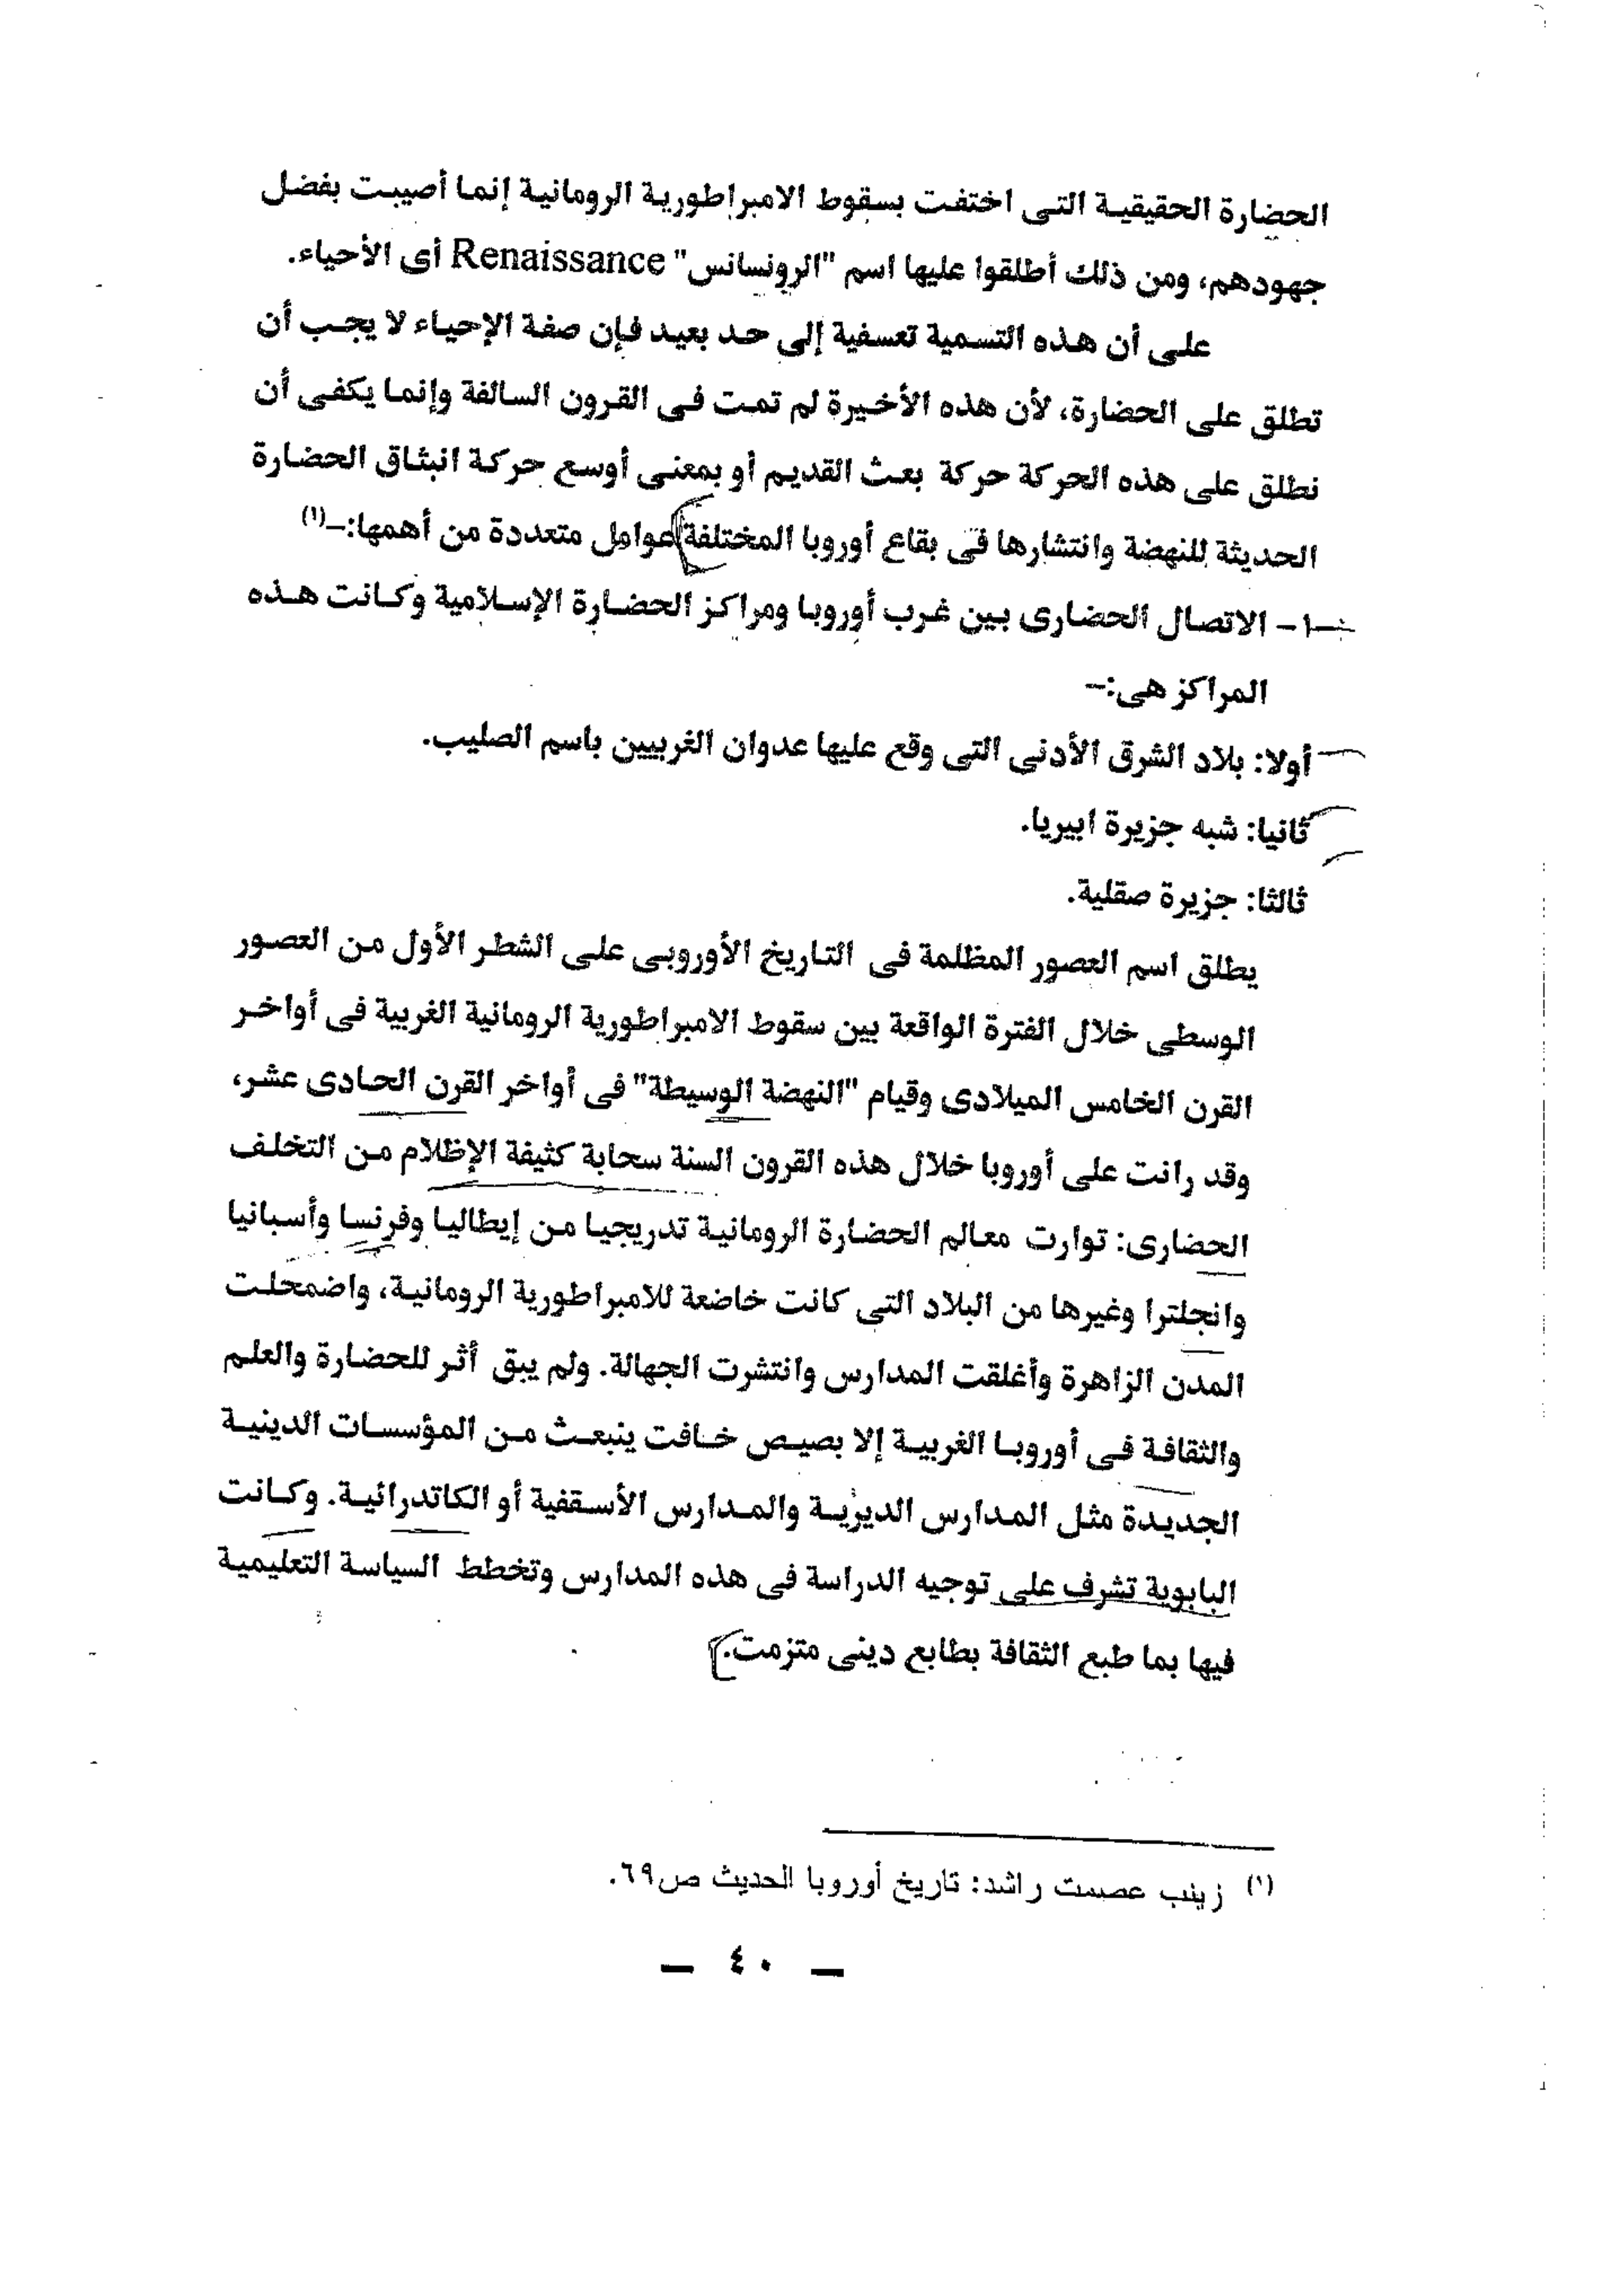 الحضارة الحقيقية التى اختفت بسقوط الامبراطورية الرومانية إنما أصيبت بفضل
جهودهم، ومن ذلك أطلقوا عليها اسم "الرونسانس" Renaissance أى الأحياء.
على أن هذه التسمية تعسفية إلى حد بعيد فإن صفة الإحياء لا يجب أن
تطلق على الحضارة، لأن هذه الأخيرة لم تمت فى القرون السالفة وإنما يكفى أن
نطلق على هذه الحركة حركة بعث القديم أو بمعنى أوسع حركة انبثاق الحضارة
الحديثة للنهضة وانتشارها فى بقاع أوروبا المختلفة عوامل متعددة من أهمها:–(١)
١– الاتصال الحضارى بين غرب أوروبا ومراكز الحضارة الإسلامية وكانت هذه
المراكز هى:–
أولا: بلاد الشرق الأدنى التى وقع عليها عدوان الغربيين باسم الصليب.
ثانيا: شبه جزيرة ابيريا.
ثالثا: جزيرة صقلية.
يطلق اسم العصور المظلمة فى التاريخ الأوروبى على الشطر الأول من العصور
الوسطى خلال الفترة الواقعة بين سقوط الامبراطورية الرومانية الغربية فى أواخر
القرن الخامس الميلادى وقيام "النهضة الوسيطة" فى أواخر القرن الحادى عشر،
وقد رانت على أوروبا خلال هذه القرون الستة سحابة كثيفة الإظلام من التخلف
الحضارى: توارت معالم الحضارة الرومانية تدريجيا من إيطاليا وفرنسا وأسبانيا
وانجلترا وغيرها من البلاد التى كانت خاضعة للامبراطورية الرومانية، واضمحلت
المدن الزاهرة وأغلقت المدارس وانتشرت الجهالة. ولم يبق أثر للحضارة والعلم
والثقافة فى أوروبا الغربية إلا بصيص خافت ينبعث من المؤسسات الدينية
الجديدة مثل المدارس الديرية والمدارس الأسقفية أو الكاتدرائية. وكانت
البابوية تشرف على توجيه الدراسة فى هذه المدارس وتخطط السياسة التعليمية
فيها بما طبع الثقافة بطابع دينى متزمت.
(١) زينب عصمت راشد: تاريخ أوروبا الحديث ص٦٩.
– ٤٠ –